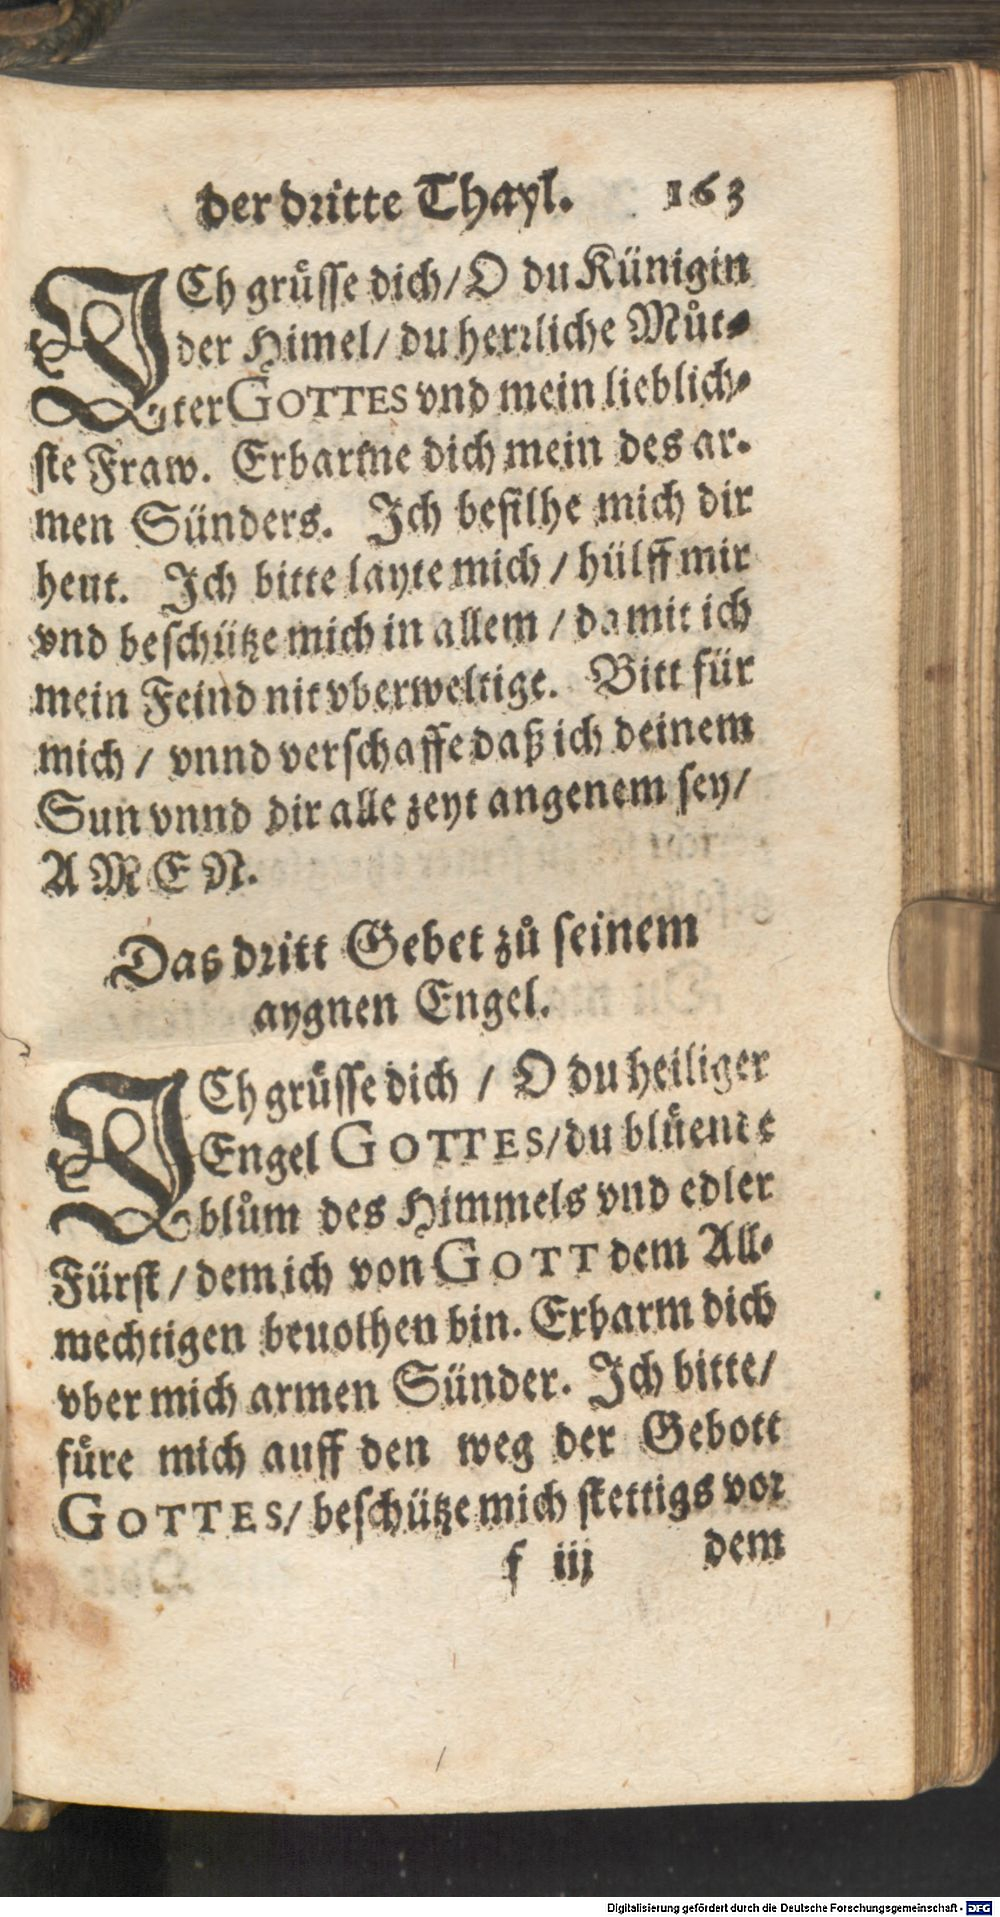 der dritte Thayl. 163
ICh grüsse dich/ O du Künigin
der Himel/ du herrliche Můt-
ter GOTTES vnd mein lieblich-
ste Fraw. Erbarme dich mein des ar-
men Sünders. Ich befilhe mich dir
heut. Ich bitte layte mich / hülff mir
vnd beschütze mich in allem / damit ich
mein Feind nit vberweltige. Bitt für
mich / vnnd verschaffe daß ich deinem
Sun vnnd dir alle zeyt angenem sey/
AMEN.
Das dritt Gebet zů seinem
aygnen Engel.
ICh grüsse dich / O du heiliger
Engel GOTTES/ du blüente
blům des Himmels vnd edler
Fürst / dem ich von GOTT dem All-
mechtigen beuolhen bin. Erbarm dich
vber mich armen Sünder. Ich bitte/
füre mich auff den weg der Gebott
GOTTES/ beschütze mich stettigs vor
f iij dem
Digitalisierung gefördert durch die Deutsche Forschungsgemeinschaft - DFG